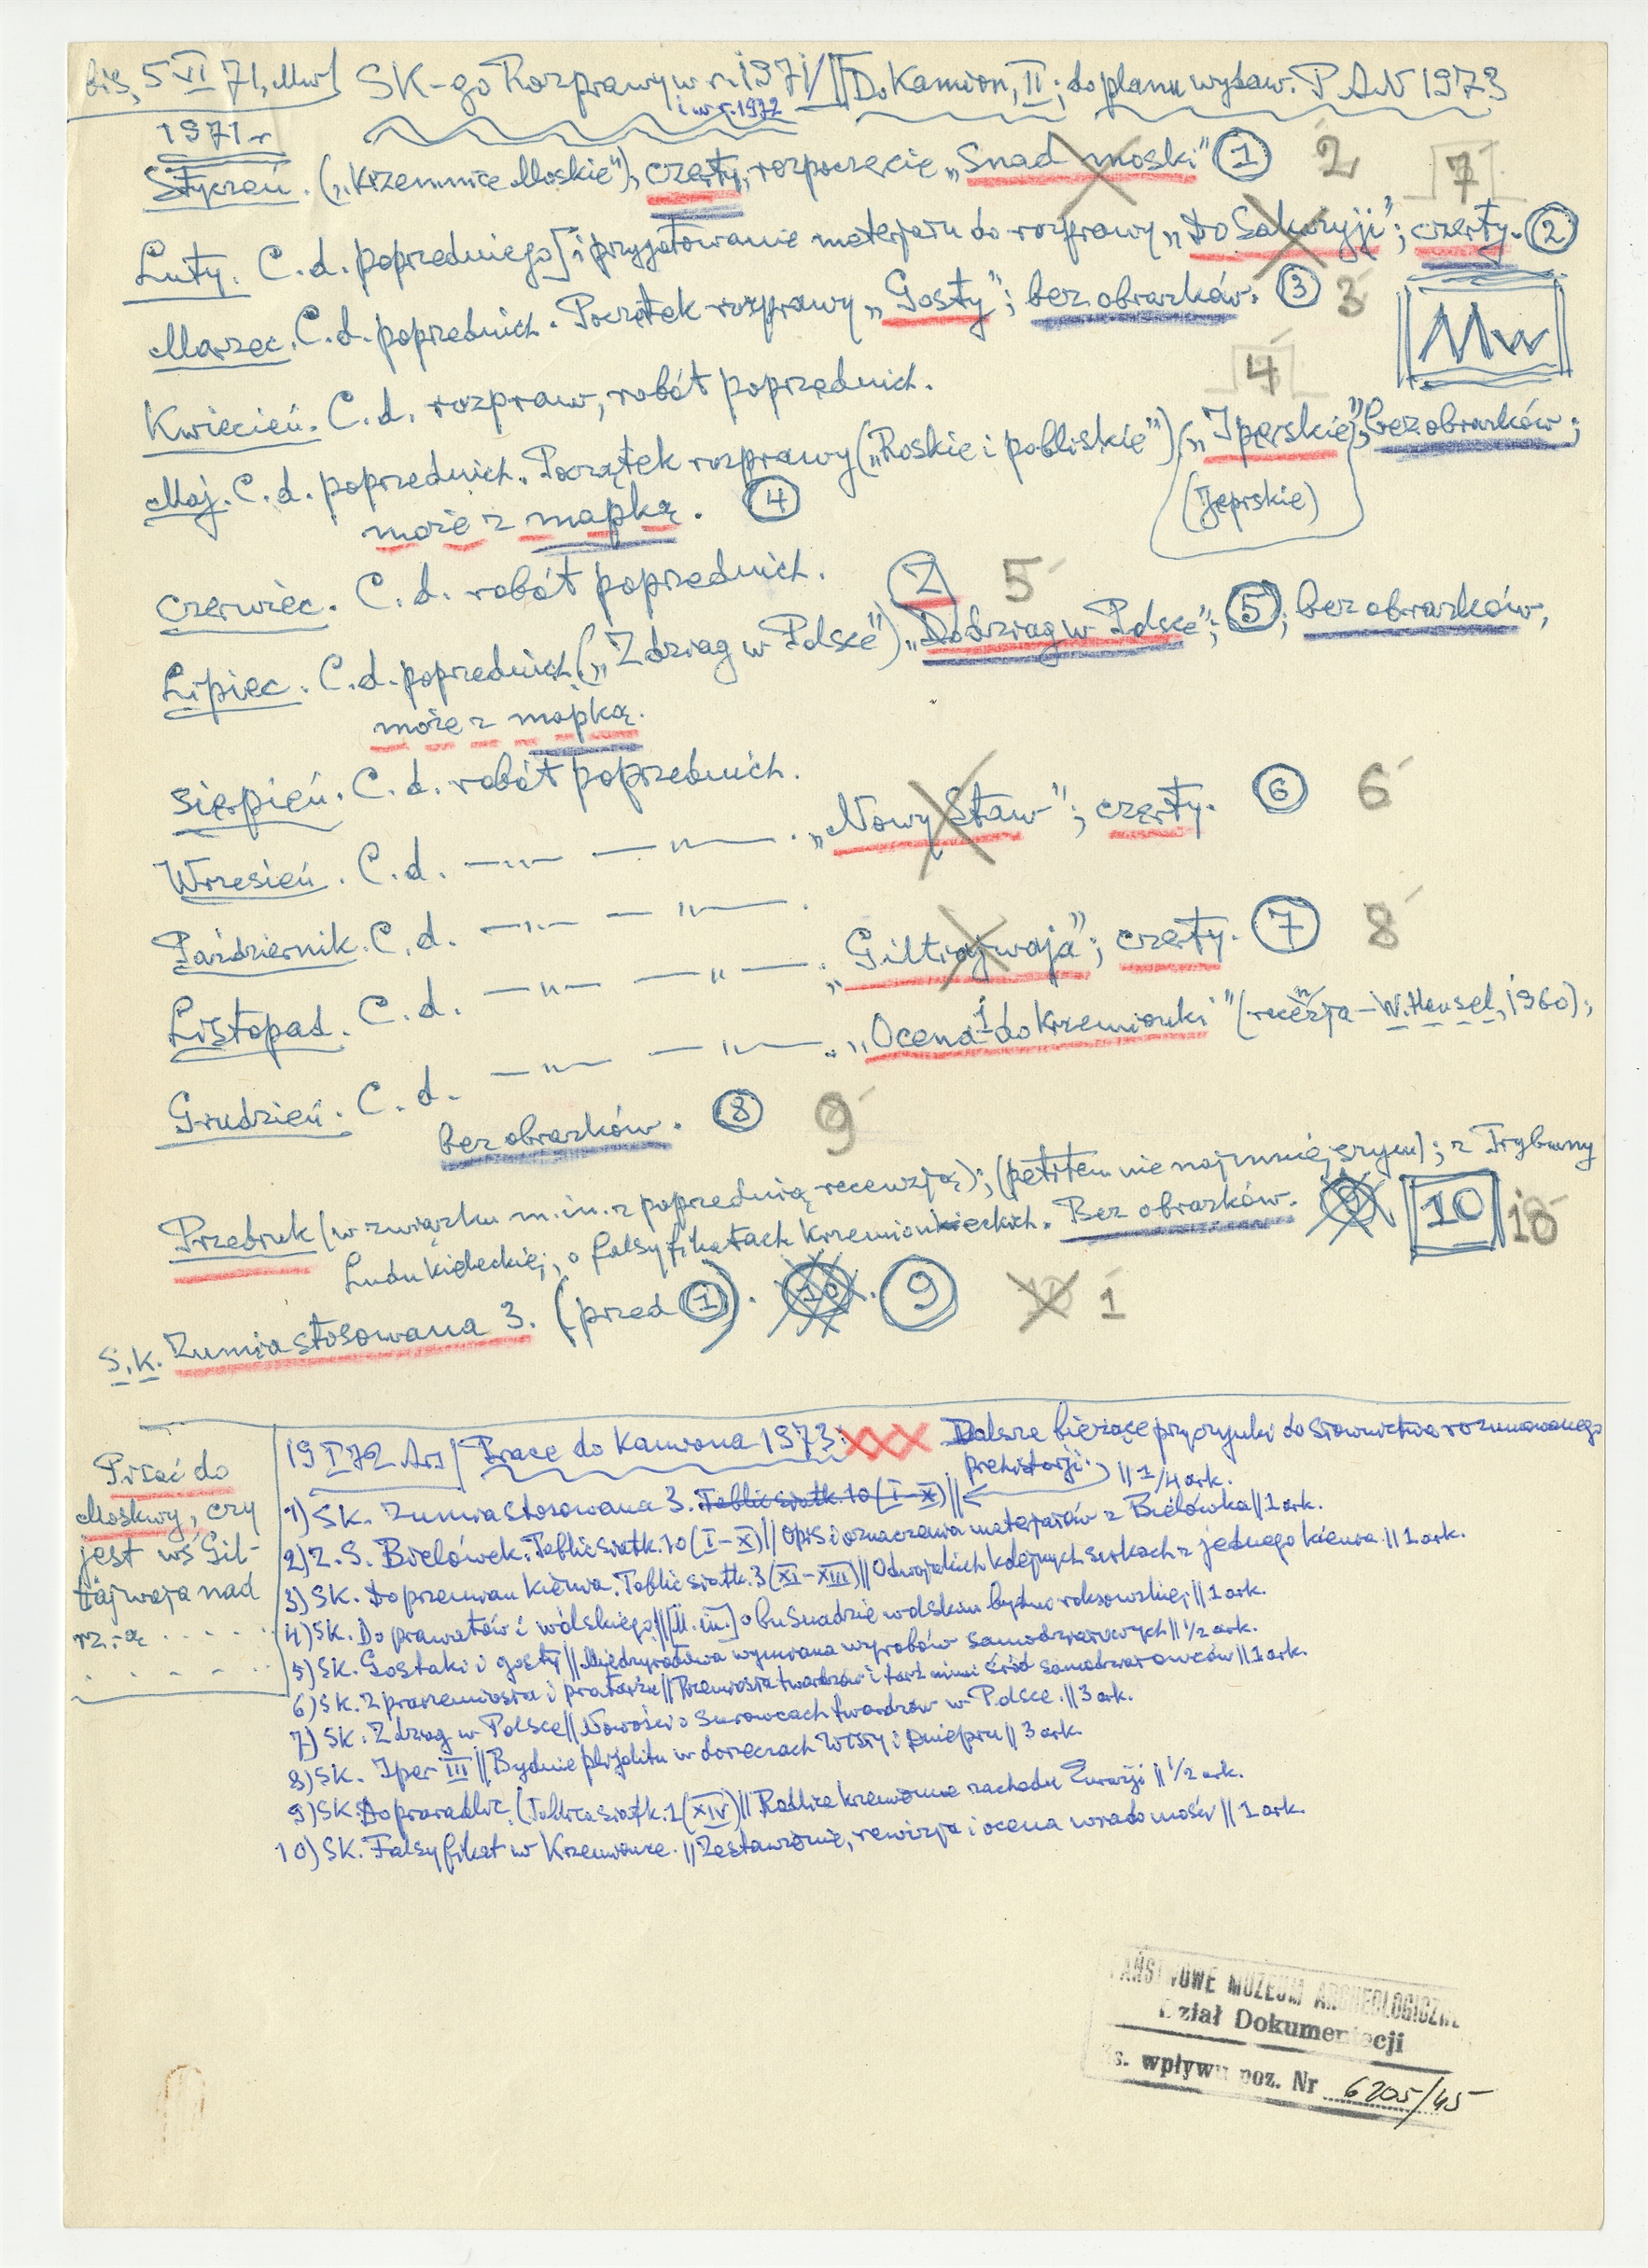 bis, 5 VI 71, Mw| SK-go Rozprawy w r. 1971/|| Do Kamion, II; do planu wydaw. PAN 1973
i w r. 1972
1971 r
Styczeń. („Krzemnice Moskie”), częsty, rozpoczęcie „Snad moski” 1 2 7
Luty. C.d. poprzedniego [i przygotowanie materjału do rozprawy „Do Sakwyji”; częsty. 2
Marzec. C.d. poprzednich. Początek rozprawy „Gosty”; bez obrazków. 3 3
Mw
Kwiecień. C.d. rozpraw, robót poprzednich. 4
Maj. C.d. poprzednich. Początek rozprawy („Roskie i pobliskie”) („Iperskie”, bez obrazków;
może z mapką. 4 (Jeprskie)
Czerwiec. C.d. robót poprzednich. Z 5
Lipiec. C.d. poprzednich („Zdziag w Polsce”) „Do dziag w Polsce”; 5; bez obrazków,
może z mapką.
Sierpień. C.d. robót poprzednich.
Wrzesień. C.d. —„— —„—. „Nowy Staw”; częsty. 6 6
Październik. C.d. —„— —„—.
Listopad. C.d. —„— —„—. „Giltrajwaja”; częsty. 7 8
Grudzień. C.d. —„— —„—. „Ocena do Krzemionki” (recenzja – W. Hensel, 1960);
bez obrazków. 8 9
Przedruk (w związku m.in. z poprzednią recenzją); (petitem nie najmniejszym); z Trybuny
Ludu kieleckiej, o falsyfikatach krzemionkieckich. Bez obrazków. 9 10 10
S.K. Zumia stosowana 3. (przed 1). 10. 9 10 1
19 I 72 Ars| Prace do Kamiona 1973: xxx Dalsze bieżące przyczynki do słownictwa rozumowanego
prehistorji.
Pisać do
Moskwy, czy
jest wś Gil-
tajwaja nad
rz-ą . . . . .
1) SK. Zumia stosowana 3. Tablic siatk. 10 (I–X) || || 1/4 ark.
2) Z.S. Bielówek. Tablic siatk. 10 (I–X) || Opis i oznaczenia materjałów z Bielówka || 1 ark.
3) SK. Do przemian kienia. Tablic siatk. 3 (XI–XIII) || O dwojakich kolejnych surkach z jednego kienia || 1 ark.
4) SK. Do prawatów i wolskiego || [M. in.] o bu Snadzie wolskim bydno roksowskiej || 1 ark.
5) SK. Gostaki i gosty || Międzyrodowa wymiana wyrobów samodziałowych || 1/2 ark.
6) SK. Z prarzemiosła i pratarżu || Rzemiosła twardzów i tarż nimi śród samodziałowców || 1 ark.
7) SK. Zdziag w Polsce || Nowości o surowcach twardzów w Polsce. || 3 ark.
8) SK. Iper III || Bydnie plyjolitu w dorzeczach Wisły i Dniepru || 3 ark.
9) SK. Do praradlic. (Tablica siatk. 1 (XIV) || Radlice krzemionne zachodu Eurazji || 1/2 ark.
10) SK. Falsyfikat w Krzemionce. || Zestawienie, rewizja i ocena wiadomości || 1 ark.
PAŃSTWOWE MUZEUM ARCHEOLOGICZNE
Dział Dokumentacji
Ks. wpływu poz. Nr 6205/45